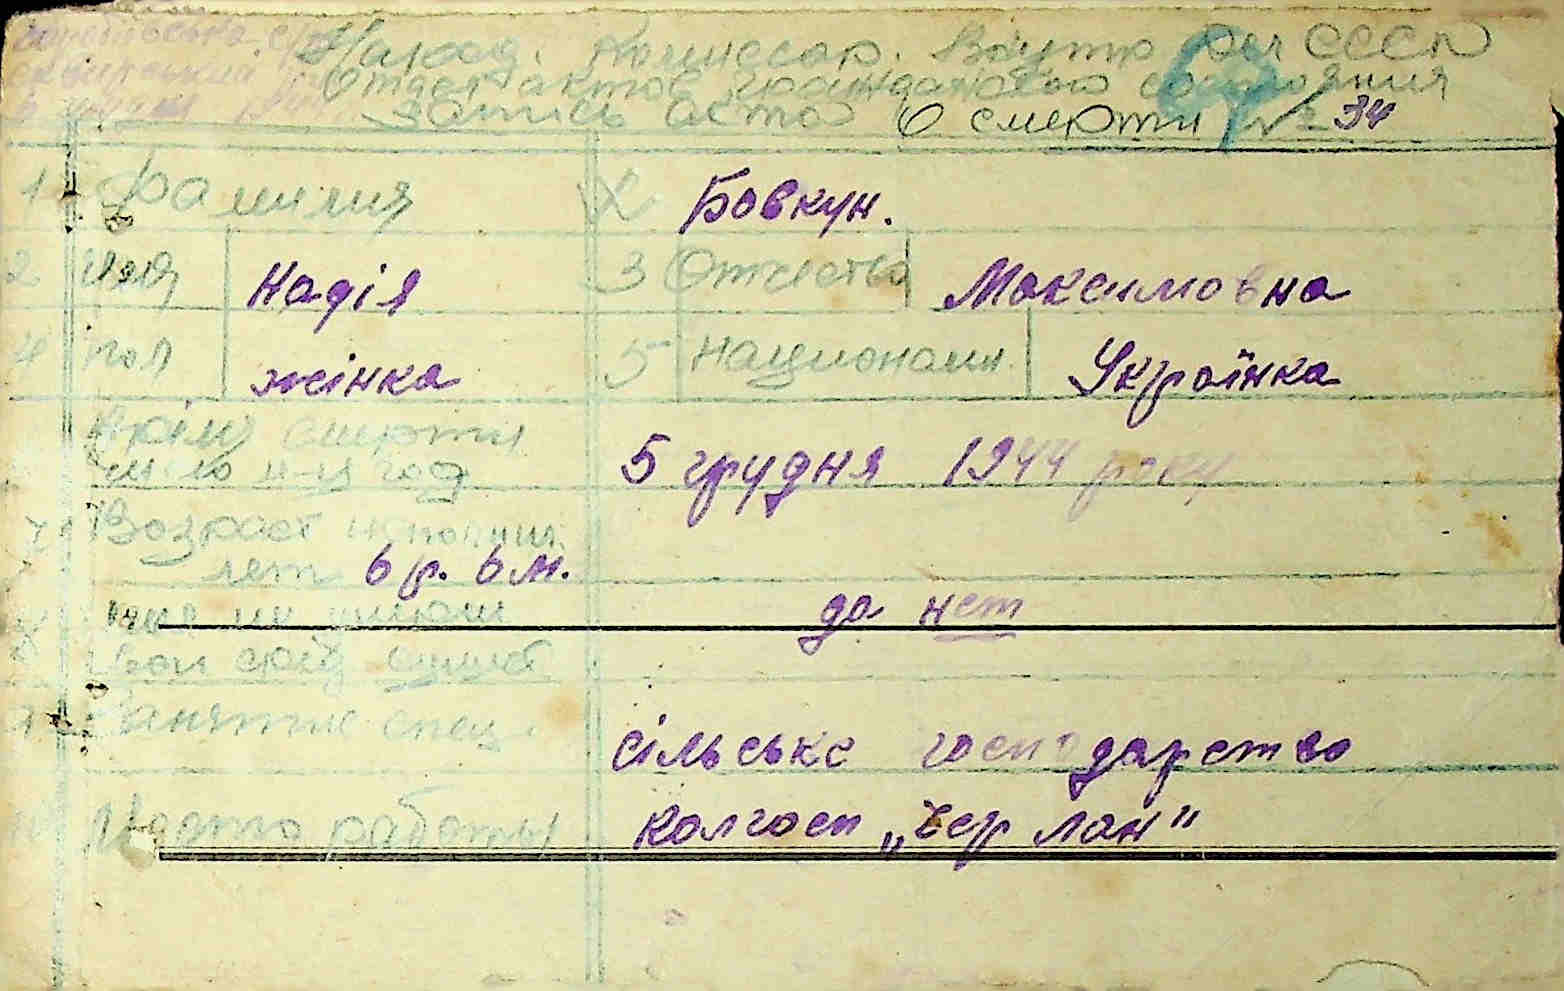 Народ. Комиссар. Внутр Дел СССР
Отдел актов гражданского состояния
Запись акта О смерти № 34
1 Фамилия Бовкун.
2 Имя Надія 3 Отчество Максимовна
4 пол жінка 5 национальн. Українка
смерти 5 грудня 1944 року
число м-ц год
7 Возраст исполнил.
лет 6 р. 6 м.
да нет
8
9 Занятие спец. сільське господарство
10 Место работы Колгосп „Чер лан"